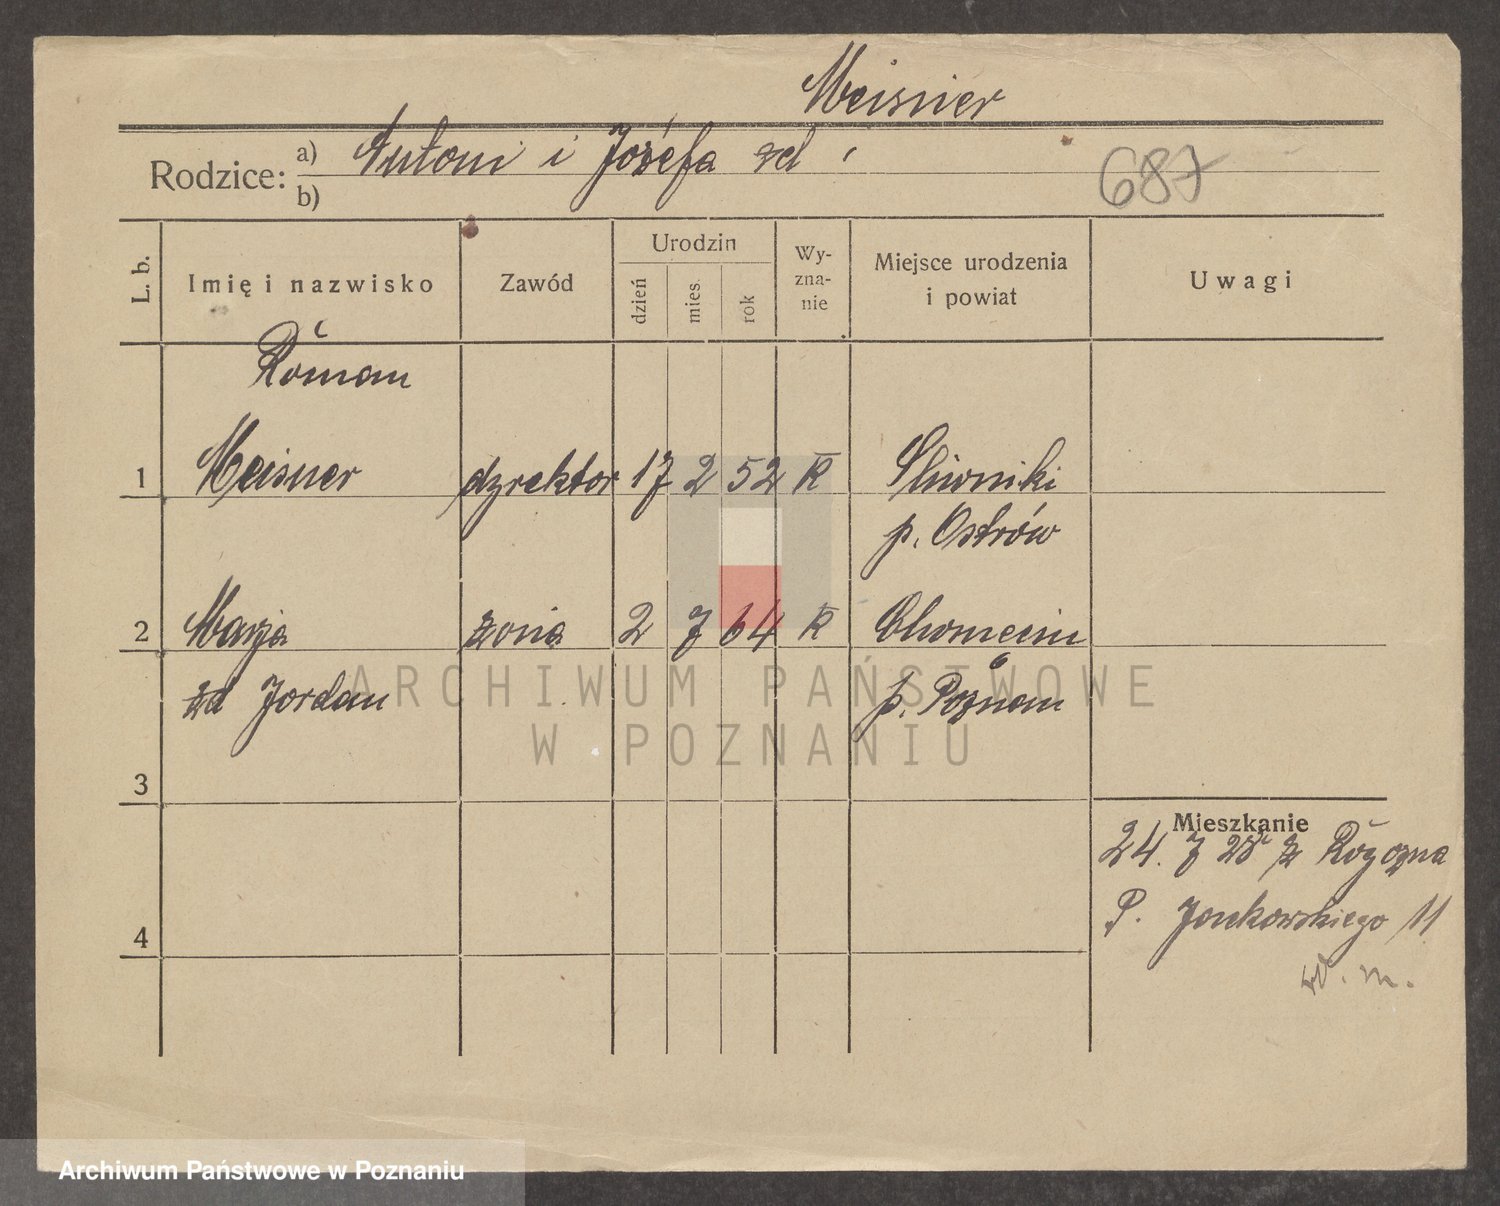 Meisner
Rodzice: a) Antoni i Józefa zd
b)
687
L. b. Imię i nazwisko Zawód Urodzin dzień mies. rok Wy-zna-nie Miejsce urodzenia i powiat Uwagi
Roman
1 Meisner dyrektor 17 2 52 K Śliwniki
p. Ostrów
2 Marja żona 2 7 64 K Chomęcin
zd Jordan p. Poznań
3
Mieszkanie
24. 7 28 z
P. 11
4
w. m.
ARCHIWUM PAŃSTWOWE
W POZNANIU
Archiwum Państwowe w Poznaniu